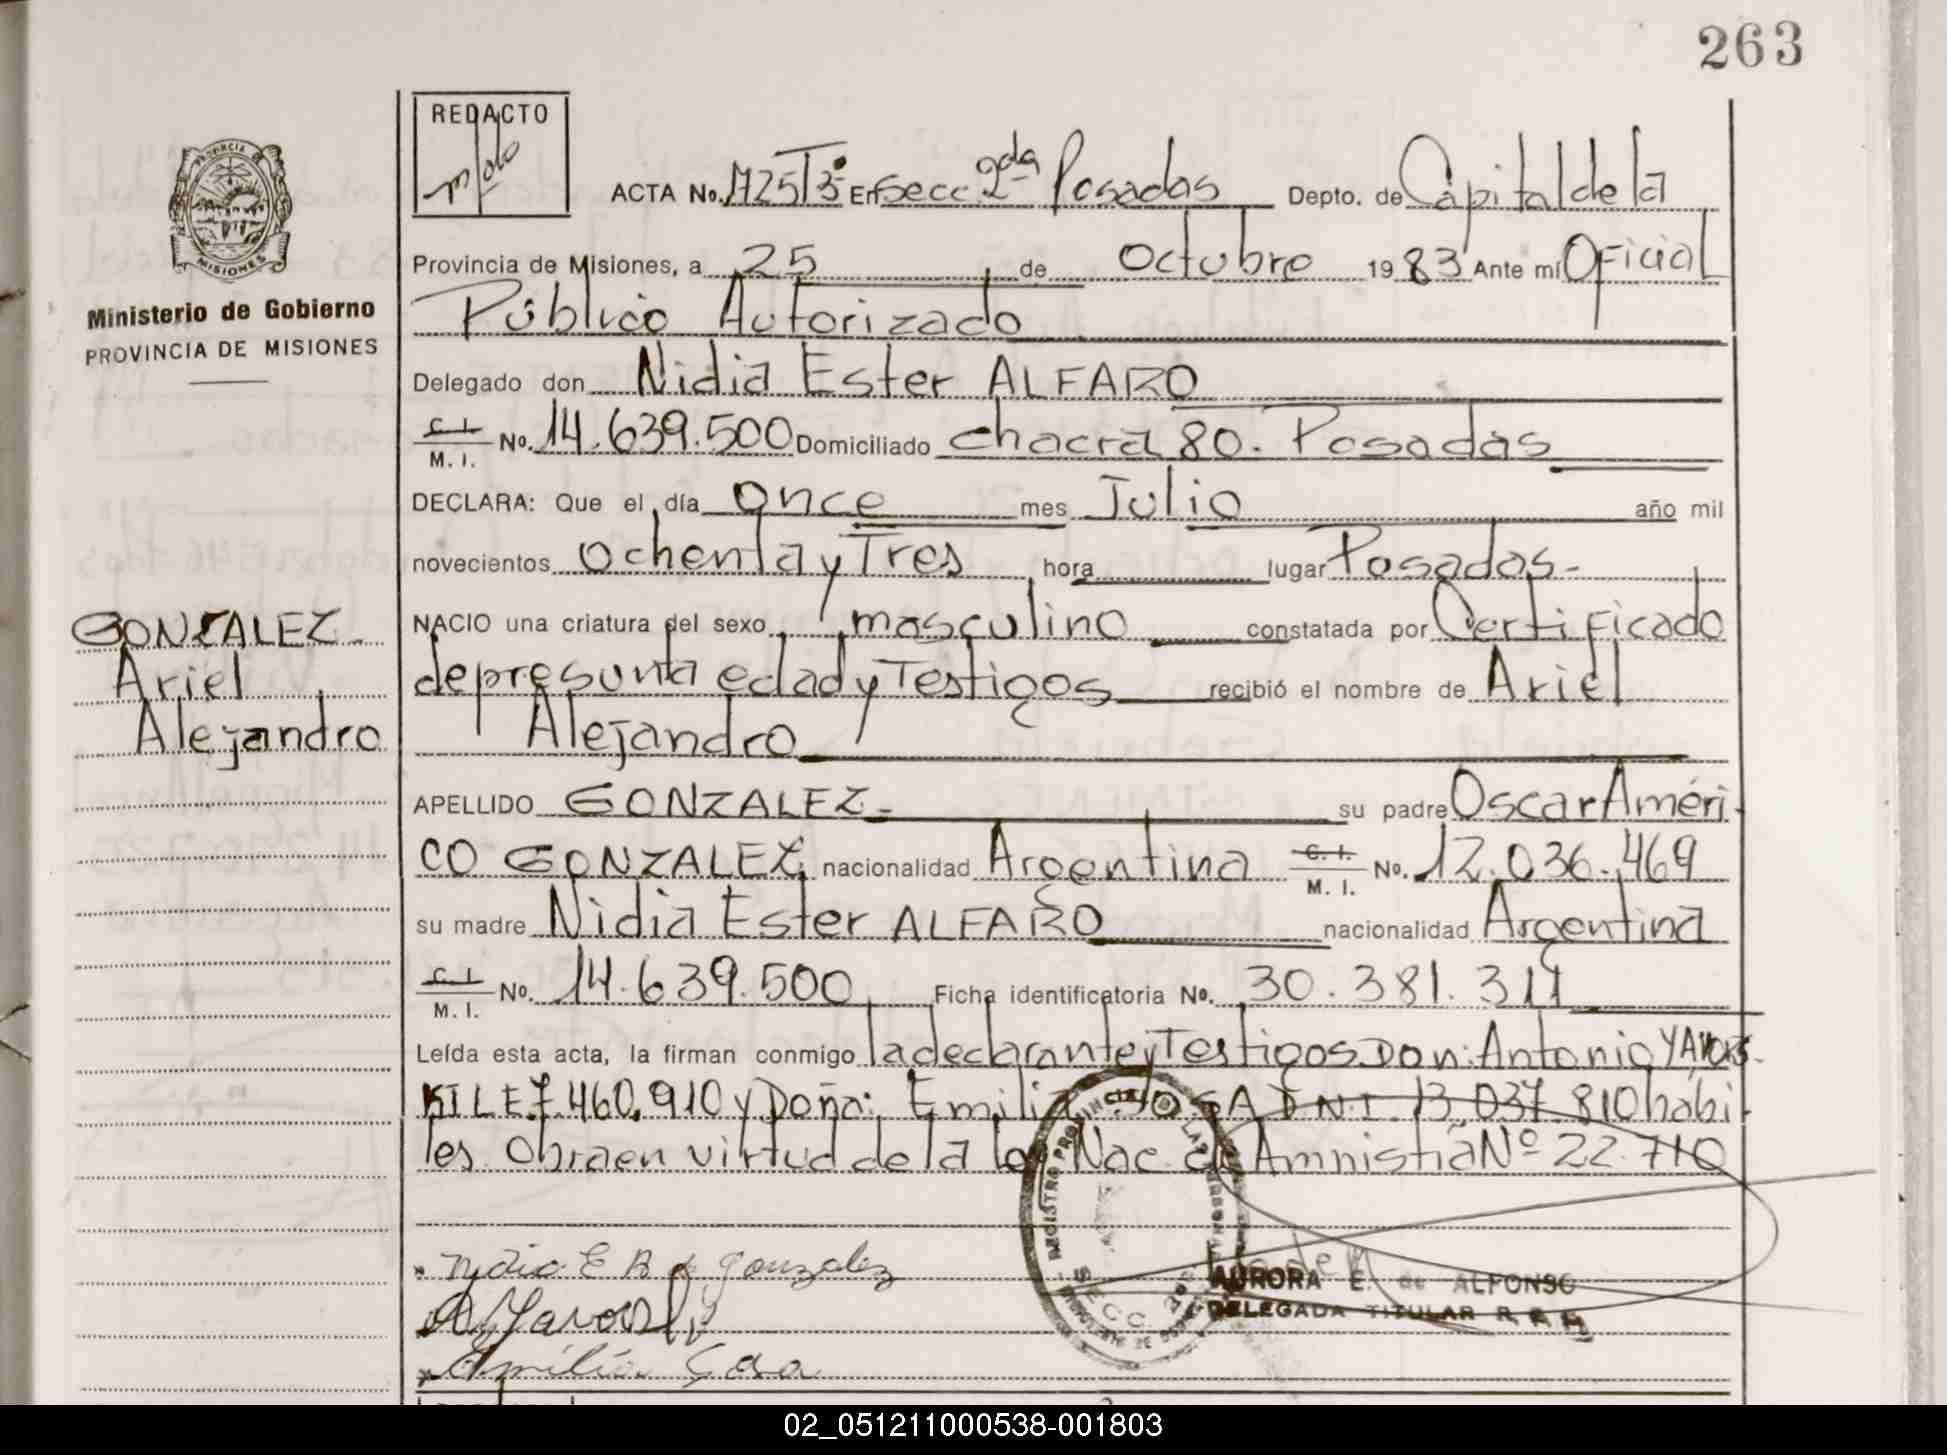 263
REDACTO
ACTA No. 1725 T3º En Secc. 2da Posadas Depto. de Capital de la
Provincia de Misiones, a 25 de Octubre 1983 Ante mí Oficial
Público Autorizado
PROVINCIA DE
MISIONES
Ministerio de Gobierno
PROVINCIA DE MISIONES
Delegado don Nidia Ester ALFARO
C. I. M. I. No. 14.639.500 Domiciliado chacra 80. Posadas
DECLARA: Que el día once mes Julio año mil
novecientos ochenta y Tres hora lugar Posadas-
NACIO una criatura del sexo masculino constatada por Certificado
de presunta edad y Testigos recibió el nombre de Ariel
Alejandro
GONZALEZ
Ariel
Alejandro
APELLIDO GONZALEZ- su padre Oscar Améri-
CO GONZALEZ nacionalidad Argentina C. I. M. I. No. 12.036.469
su madre Nidia Ester ALFARO nacionalidad Argentina
C. I. M. I. No. 14.639.500 Ficha identificatoria No. 30.381.311
Leída esta acta, la firman conmigo la declarante y Testigos Don: Antonio YAVORS-
KI L.E 7.460.910 y Doña: Emilia SOSA D.N.I. 13.037.810 habi-
les. Obra en virtud de la ley Nac. de Amnistía Nº 22.710
Nidia E A de Gonzalez
A Yavorski
Emilia Sosa
REGISTRO PROVINCIAL DE LAS PERSONAS
SECC. 2da
AURORA E. de ALFONSO
DELEGADA TITULAR
02_051211000538-001803